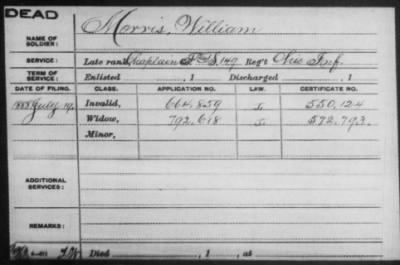 DEAD
NAME OF SOLDIER: Morris, William
SERVICE: Late rank Chaplain F&S, 149 Reg't Ohio Inf.
TERM OF SERVICE: Enlisted , 1 Discharged , 1
DATE OF FILING. CLASS. APPLICATION NO. LAW. CERTIFICATE NO.
1888 July 19. Invalid, 664.859 I. 550.124
Widow, 792.618 I. 572.793.
Minor,
ADDITIONAL SERVICES:
REMARKS:
Died , 1 , at